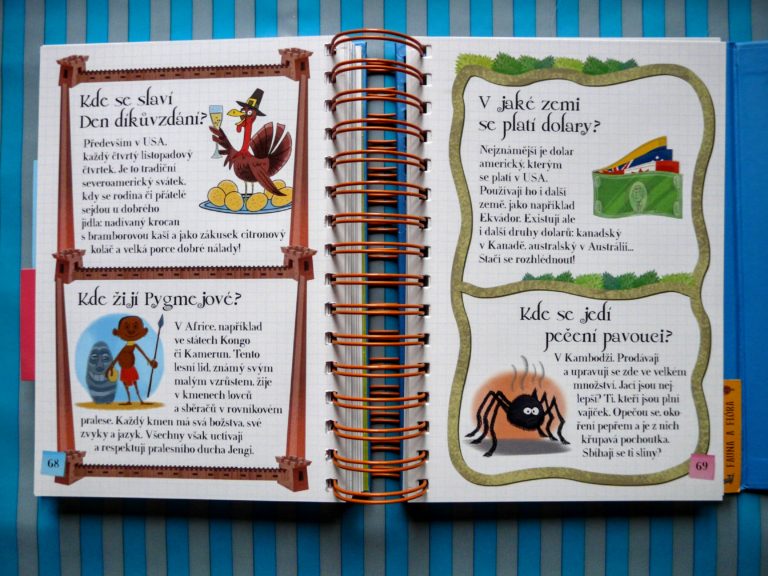 Kde se slaví
Den díkůvzdání?
Především v USA,
každý čtvrtý listopadový
čtvrtek. Je to tradiční
severoamerický svátek,
kdy se rodina či přátelé
sejdou u dobrého
jídla: nadívaný krocan
s bramborovou kaší a jako zákusek citronový
koláč a velká porce dobré nálady!
Kde žijí Pygmejové?
V Africe, například
ve státech Kongo
či Kamerun. Tento
lesní lid, známý svým
malým vzrůstem, žije
v kmenech lovců
a sběračů v rovníkovém
pralese. Každý kmen má svá božstva, své
zvyky a jazyk. Všechny však uctívají
a respektují pralesního ducha Jengi.
68
V jaké zemi
se platí dolary?
Nejznámější je dolar
americký, kterým
se platí v USA.
Používají ho i další
země, jako například
Ekvádor. Existují ale
i další druhy dolarů: kanadský
v Kanadě, australský v Austrálii...
Stačí se rozhlédnout!
Kde se jedí
pečení pavouci?
V Kambodži. Prodávají
a upravují se zde ve velkém
množství. Jací jsou nej-
lepší? Ti, kteří jsou plní
vajíček. Opečou se, oko-
ření pepřem a je z nich
křupavá pochoutka.
Sbíhají se ti sliny?
69
FAUNA A FLÓRA